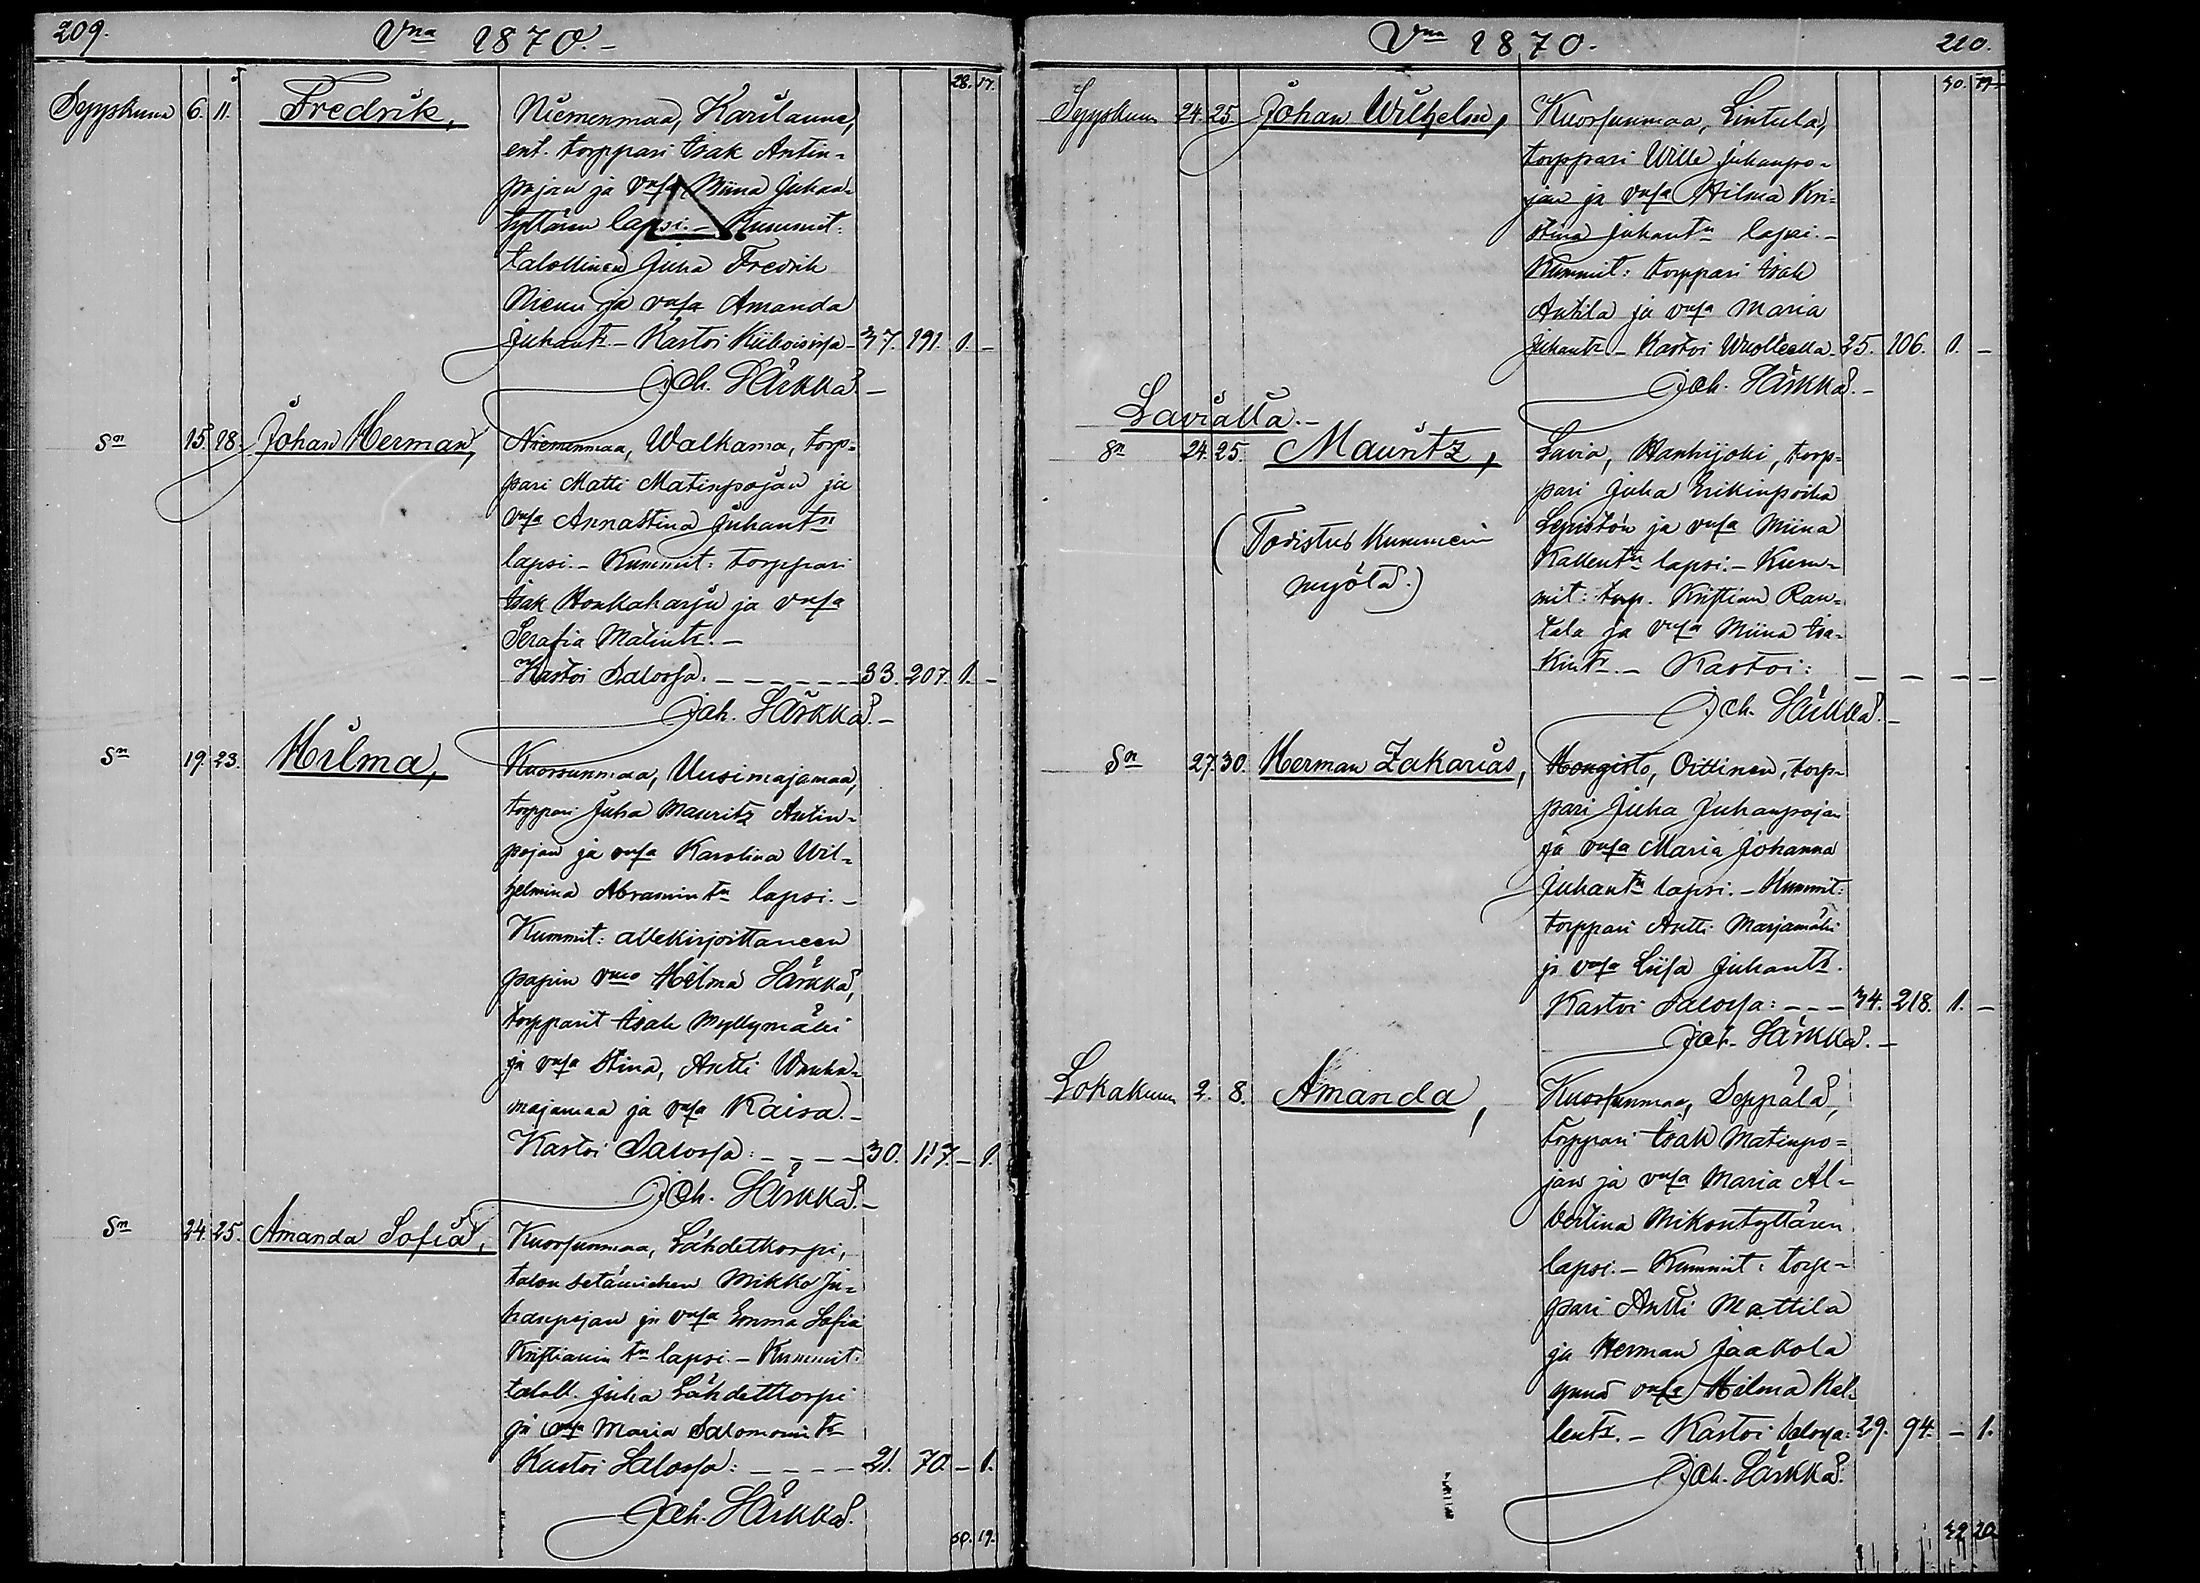 209.
Vna 1870.-
28. 17.
Syyskuun 6. 11. Fredrik, Niemenmaa, Karilanma,
ent. torppari Isak Antin-
pojan ja vmsa Miina Juhan-
tyttären lapsi.- Kummit:
talollinen Juha Fredrik
Niemi ja vmsa Amanda
Juhantr.- Kastoi Kiikoisissa - 37. 191. 1. -
Joh. Särkkä.-
Sn 15. 18. Johan Herman, Niemenmaa, Walkama, torp-
pari Matti Matinpojan ja
vmsa Annastina Juhantn
lapsi.- Kummit: torppari
Isak Honkaharju ja vmsa
Serafia Matintr.-
Kastoi Salossa. - - - - - - 33. 207. 1. -
Joh. Särkkä.-
Sn 19. 23. Hilma, Kuorsunmaa, Uusimajamaa,
torppari Juha Mauritz Antin-
pojan ja vmsa Karolina Wil-
helmina Abramintn lapsi.-
Kummit: allekirjoittaneen
papin vmo Hilma Särkkä,
torpparit Isak Myllymäki
ja vmsa Stina, Antti Wanha-
majamaa ja vmsa Kaisa.-
Kastoi Salossa: - - - - 30. 117. - 1.
Joh. Särkkä.-
Sn 24. 25. Amanda Sofia, Kuorsunmaa, Lähdetkorpi,
talon setämiehen Mikko Ju-
hanpojan ja vmsa Emma Sofia
Kristianin tn lapsi.- Kummit:
taloll. Juha Lähdetkorpi
ja vmsa Maria Salomonintr
Kastoi Salossa: - - - - 21. 70. - 1.
Joh. Särkkä.
30. 19.
Vna 1870.
210.
30. 19.
Syyskuun 24. 25. Johan Wilhelm, Kuorsunmaa, Lintula,
torppari Wille Juhanpo-
jan ja vmsa Hilma Kri-
stina Juhantn lapsi.-
Kummit: torppari Isak
Antila ja vmsa Maria
Juhantr - Kastoi Wuolteella - 25. 106. 1. -
Joh. Särkkä.-
Lavialla.-
Sn 24. 25. Mauritz, Lavia, Hanhijoki, torp-
pari Juha Erikinpoika
(Todistus kummein
myötä.)
Lepistön ja vmsa Miina
Kallentn lapsi.- Kum-
mit: torp. Kristian Ran-
tala ja vmsa Miina Isa-
kintr.- Kastoi: - - - -
Joh. Särkkä.-
Sn 27. 30. Herman Zakarias, Hongisto, Oittinen, torp-
pari Juha Juhanpojan
ja vmsa Maria Johanna
Juhantn lapsi.- Kummit:
torppari Antti Marjamäki
ja vmsa Liisa Juhantr.
Kastoi Salossa: - - - 34. 218. 1. -
Joh. Särkkä.-
Lokakuun 2. 8. Amanda, Kuorsunmaa, Seppälä,
torppari Isak Matinpo-
jan ja vmsa Maria Al-
bertina Mikontyttären
lapsi.- Kummit: torp-
pari Antti Mattila
ja Herman Jaakola
ynnä vmsa Hilma Kal-
lentr.- Kastoi Salossa: 29. 94. - 1.
Joh. Särkkä.
32 20